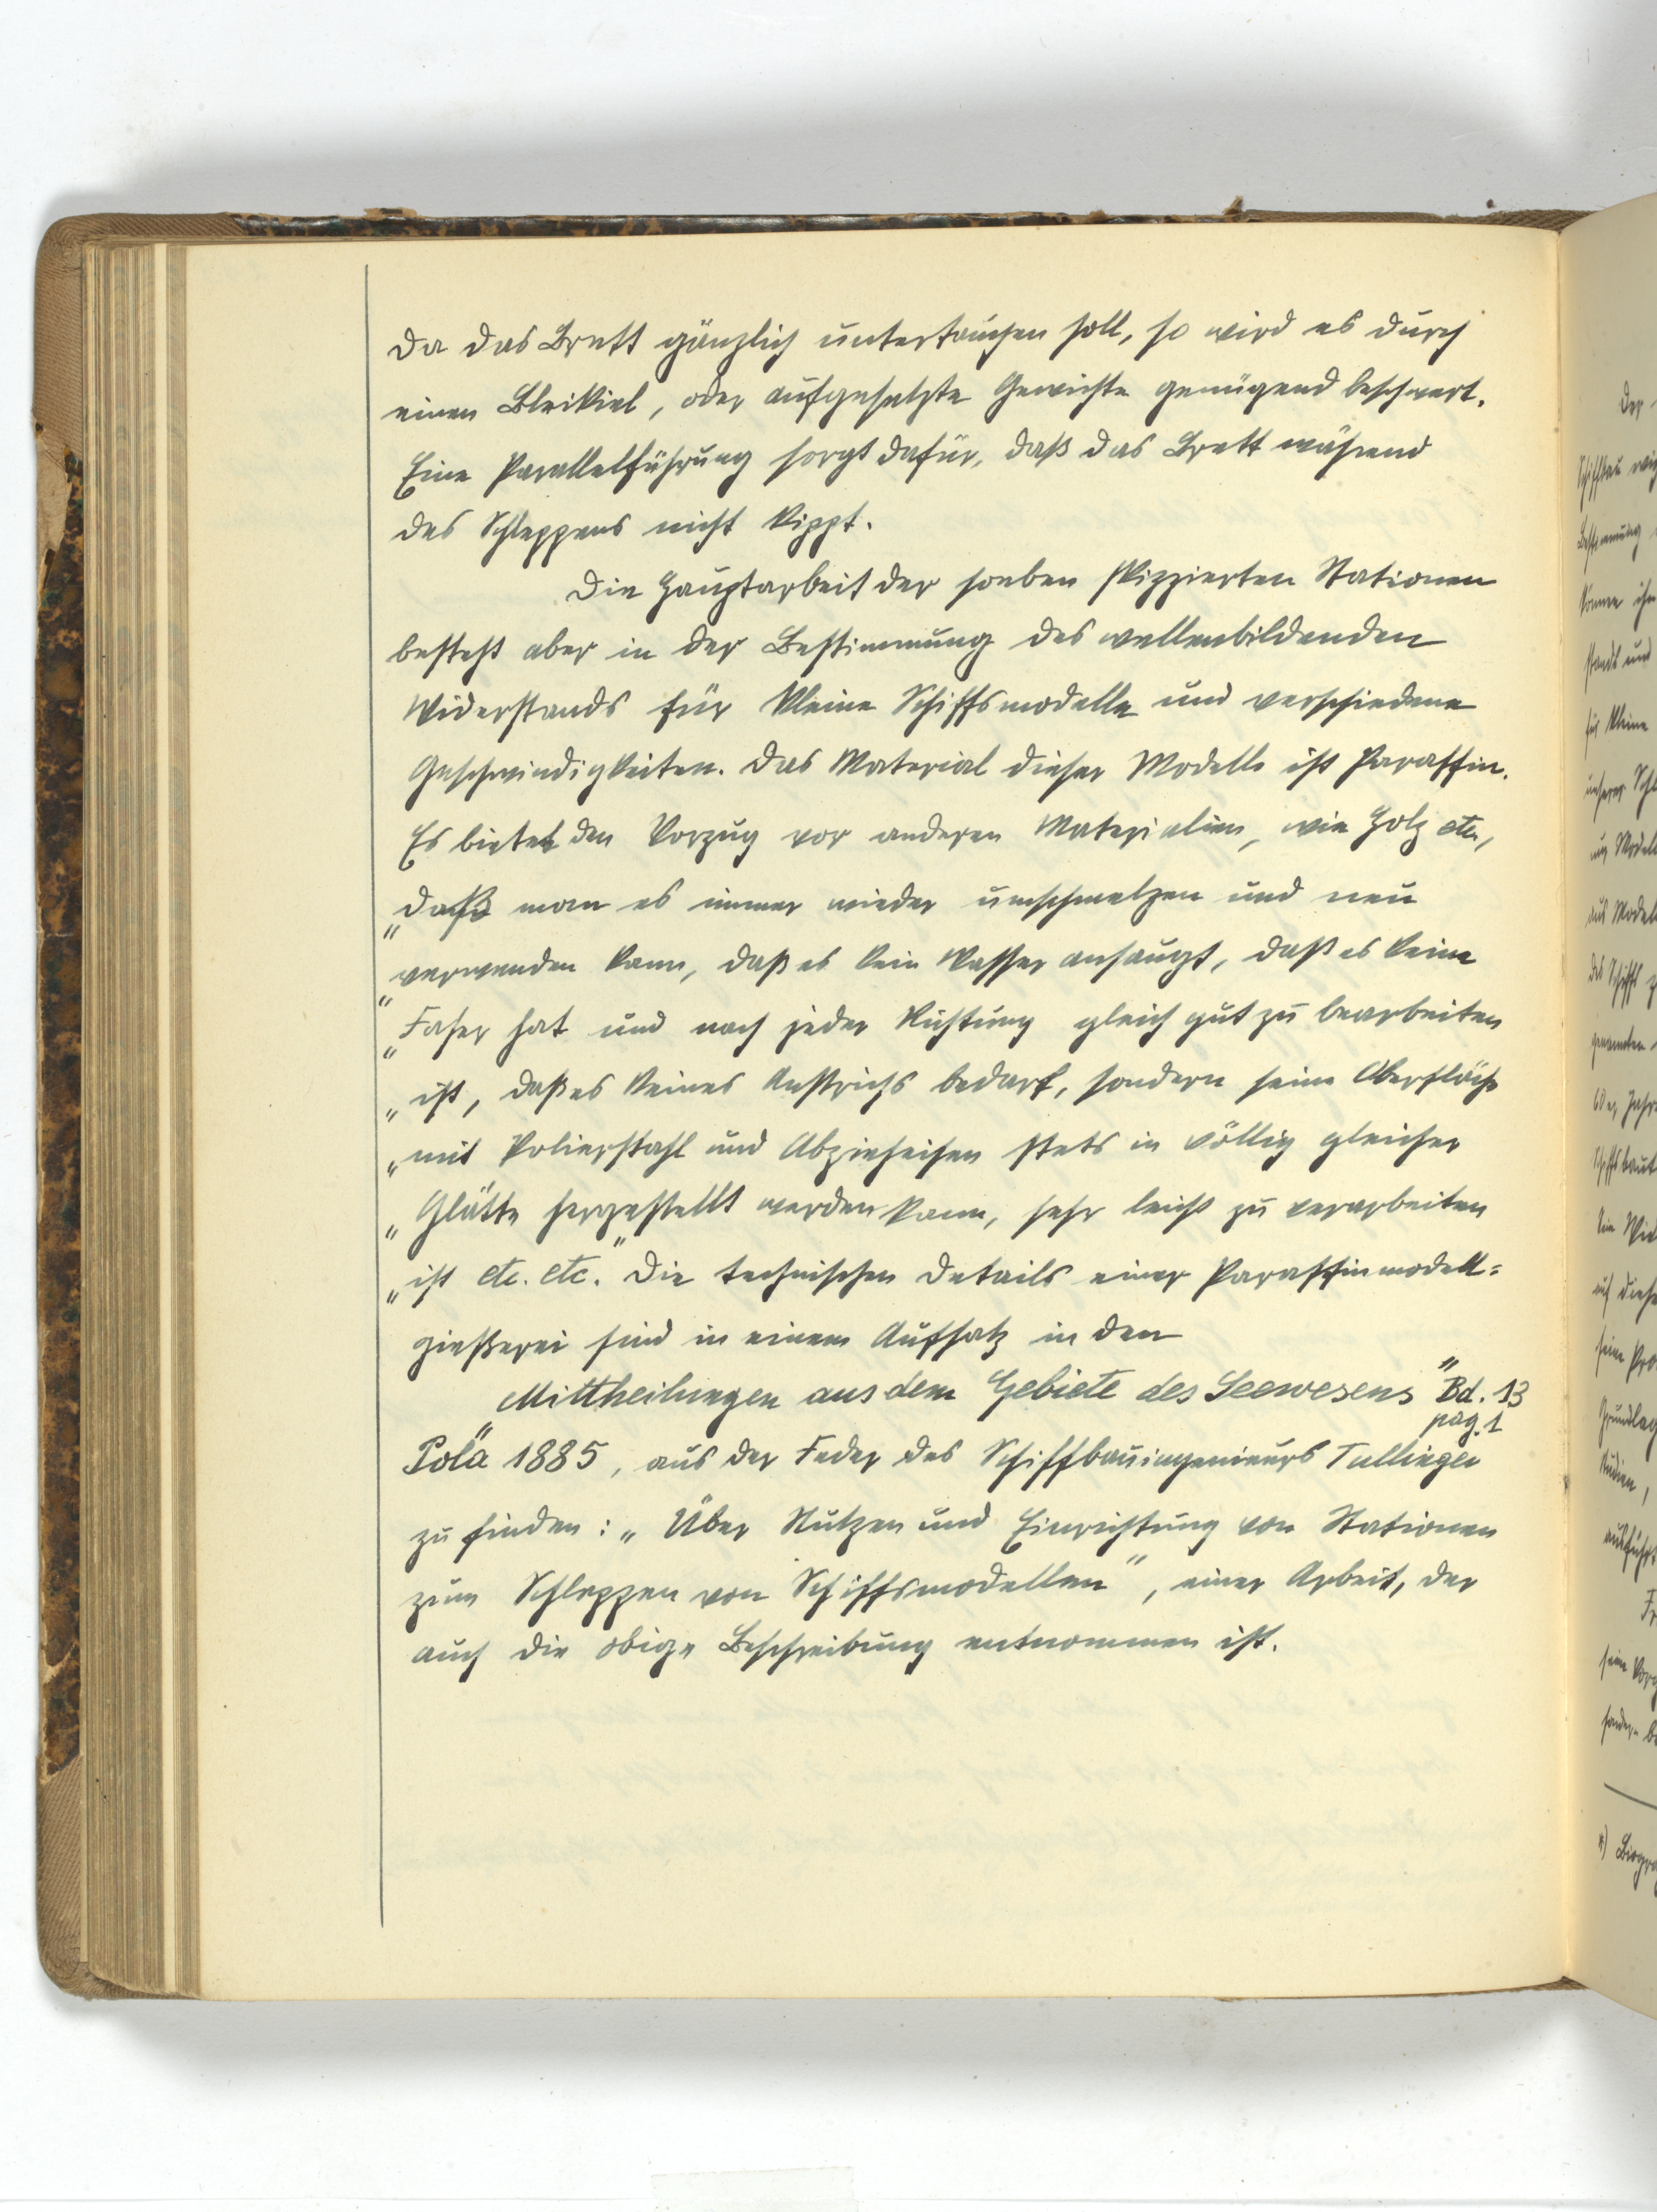 Da das Brett gänzlich untertauchen soll, so wird es durch
einen Bleikiel, oder aufgesetzte Gewichte genügend beschwert.
Eine Parallelführung sorgt dafür, daß das Brett während
des Schleppens nicht kippt.
Die Hauptarbeit der soeben skizzierten Stationen
besteht aber in der Bestimmung des wellenbildenden
Widerstands für kleine Schiffsmodelle und verschiedene
Geschwindigkeiten. Das Material dieser Modelle ist Paraffin.
Es bietet den Vorzug vor anderen Materialien, wie Holz etc.,
„daß man es immer wieder umschmelzen und neu
„verwenden kann, daß es kein Wasser ansaugt, daß es keine
„Faser hat und nach jeder Richtung gleich gut zu bearbeiten
„ist, daß es keines Anstrichs bedarf, sondern seine Oberfläche
„mit Polierstahl und Abzieheisen stets in völlig gleicher
„Glätte hergestellt werden kann, sehr leicht zu verarbeiten
„ist etc. etc." Die technischen Details einer Paraffinmodell=
gießerei sind in einem Aufsatz in den
„Mittheilungen aus dem Gebiete des Seewesens" Bd. 13
pag. 1
Pola 1885, aus der Feder des Schiffbauingenieurs Tullinger
zu finden: „Über Nutzen und Einrichtung von Stationen
zum Schleppen von Schiffsmodellen", einer Arbeit, der
auch die obige Beschreibung entnommen ist.
Der
Schiffbau
Bestimmung
könne ihn
stands und
für kleine
unserer
nur
aus
des Schiffs
genannten
60er Jahr
auf diese
seine